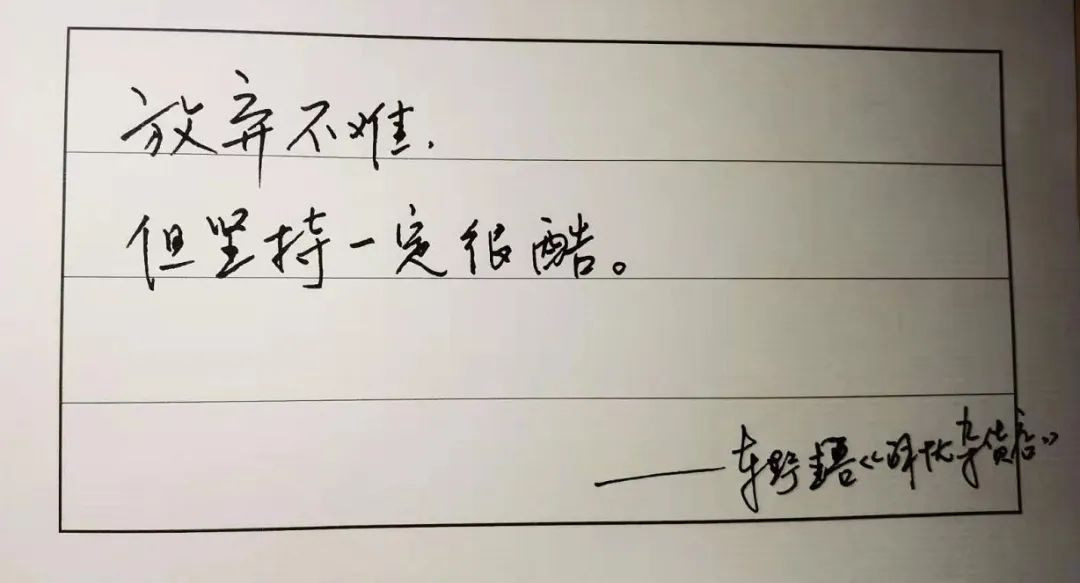 放弃不难.
但坚持一定很酷。
——东野圭吾《解忧杂货店》